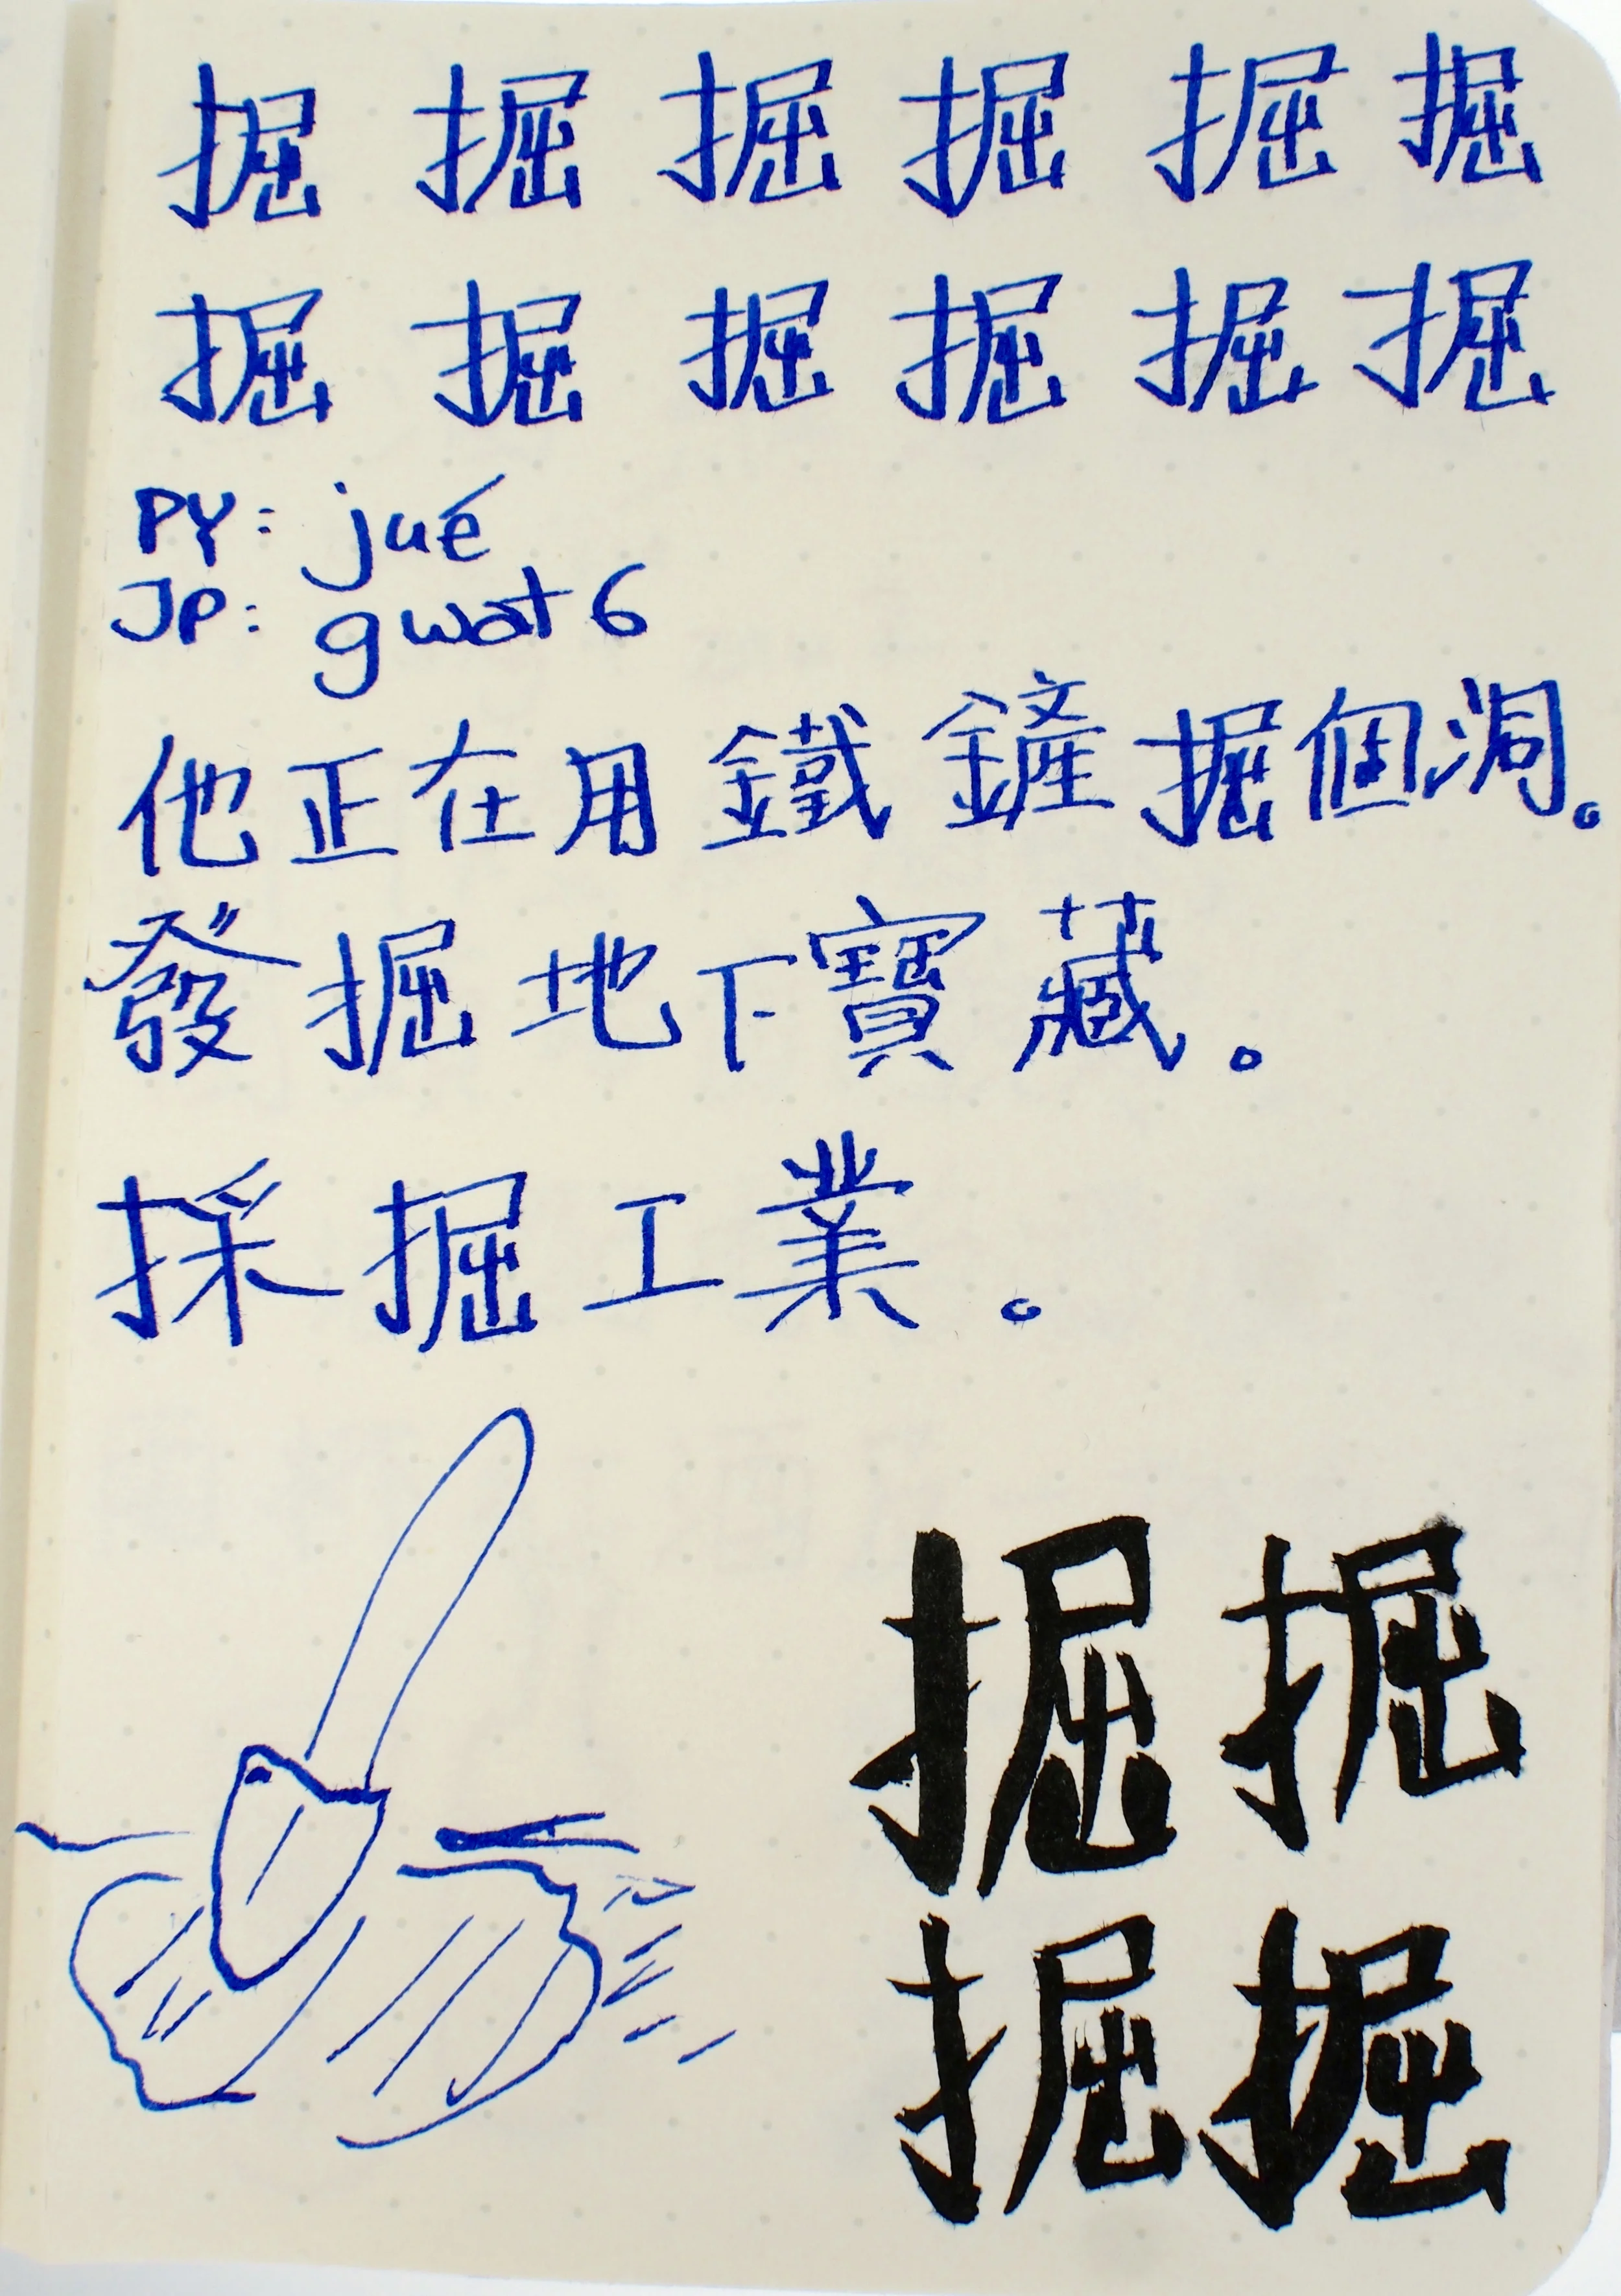 掘 掘 掘 掘 掘 掘
掘 掘 掘 掘 掘 掘
PY: jué
JP: gwat6
他正在用鐵鏟掘個洞。
發掘地下寶藏。
採掘工業。
掘 掘
掘 掘